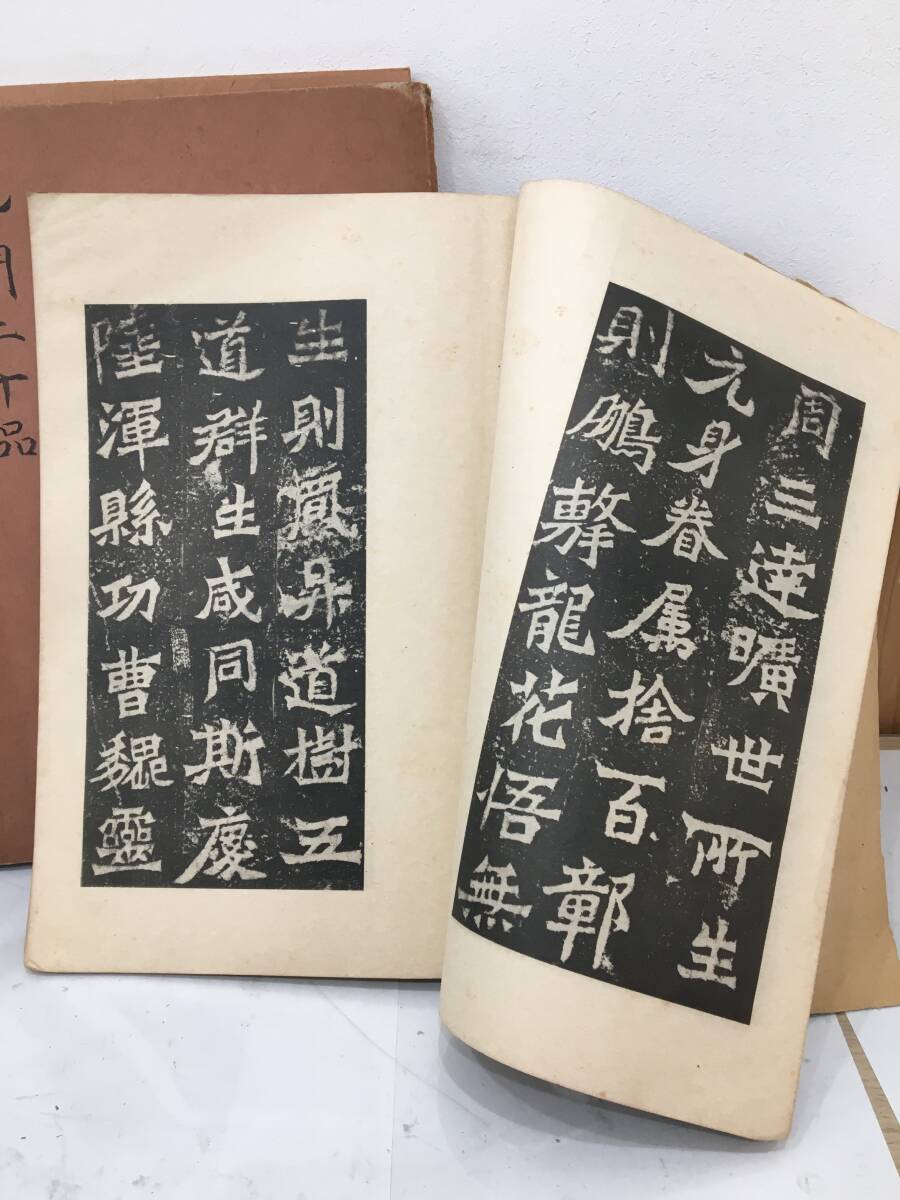 周三達曠世所生
元身眷属捨百鄣
則鵬擊龍花悟無
生則鳳昇道樹五
道群生咸同斯慶
陸渾縣功曹魏靈
二十品